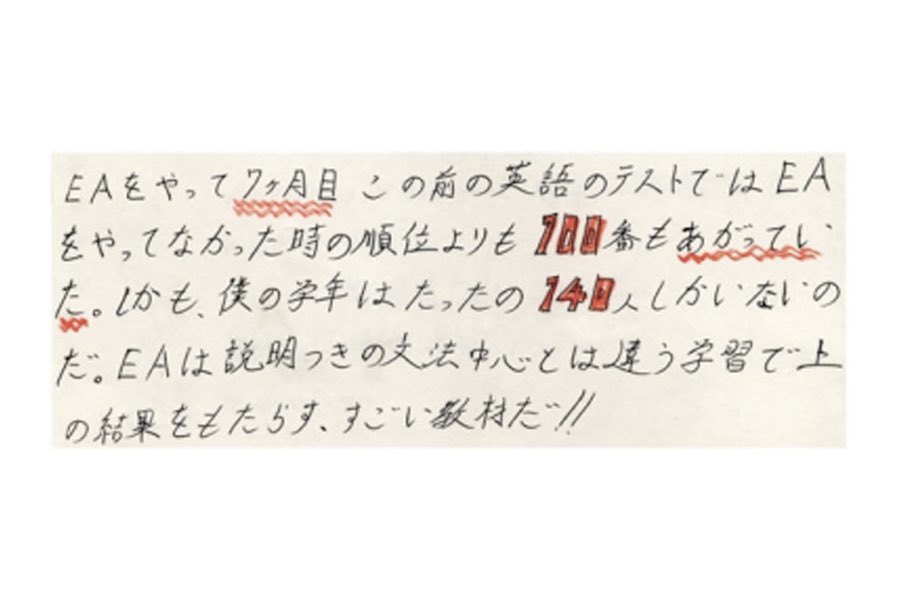 EAをやって7ヶ月目 この前の英語のテストではEA
をやってなかった時の順位よりも100番もあがってい
た。しかも、僕の学年はたったの140人しかいないの
だ。EAは説明つきの文法中心とは違う学習で上
の結果をもたらす、すごい教材だ!!